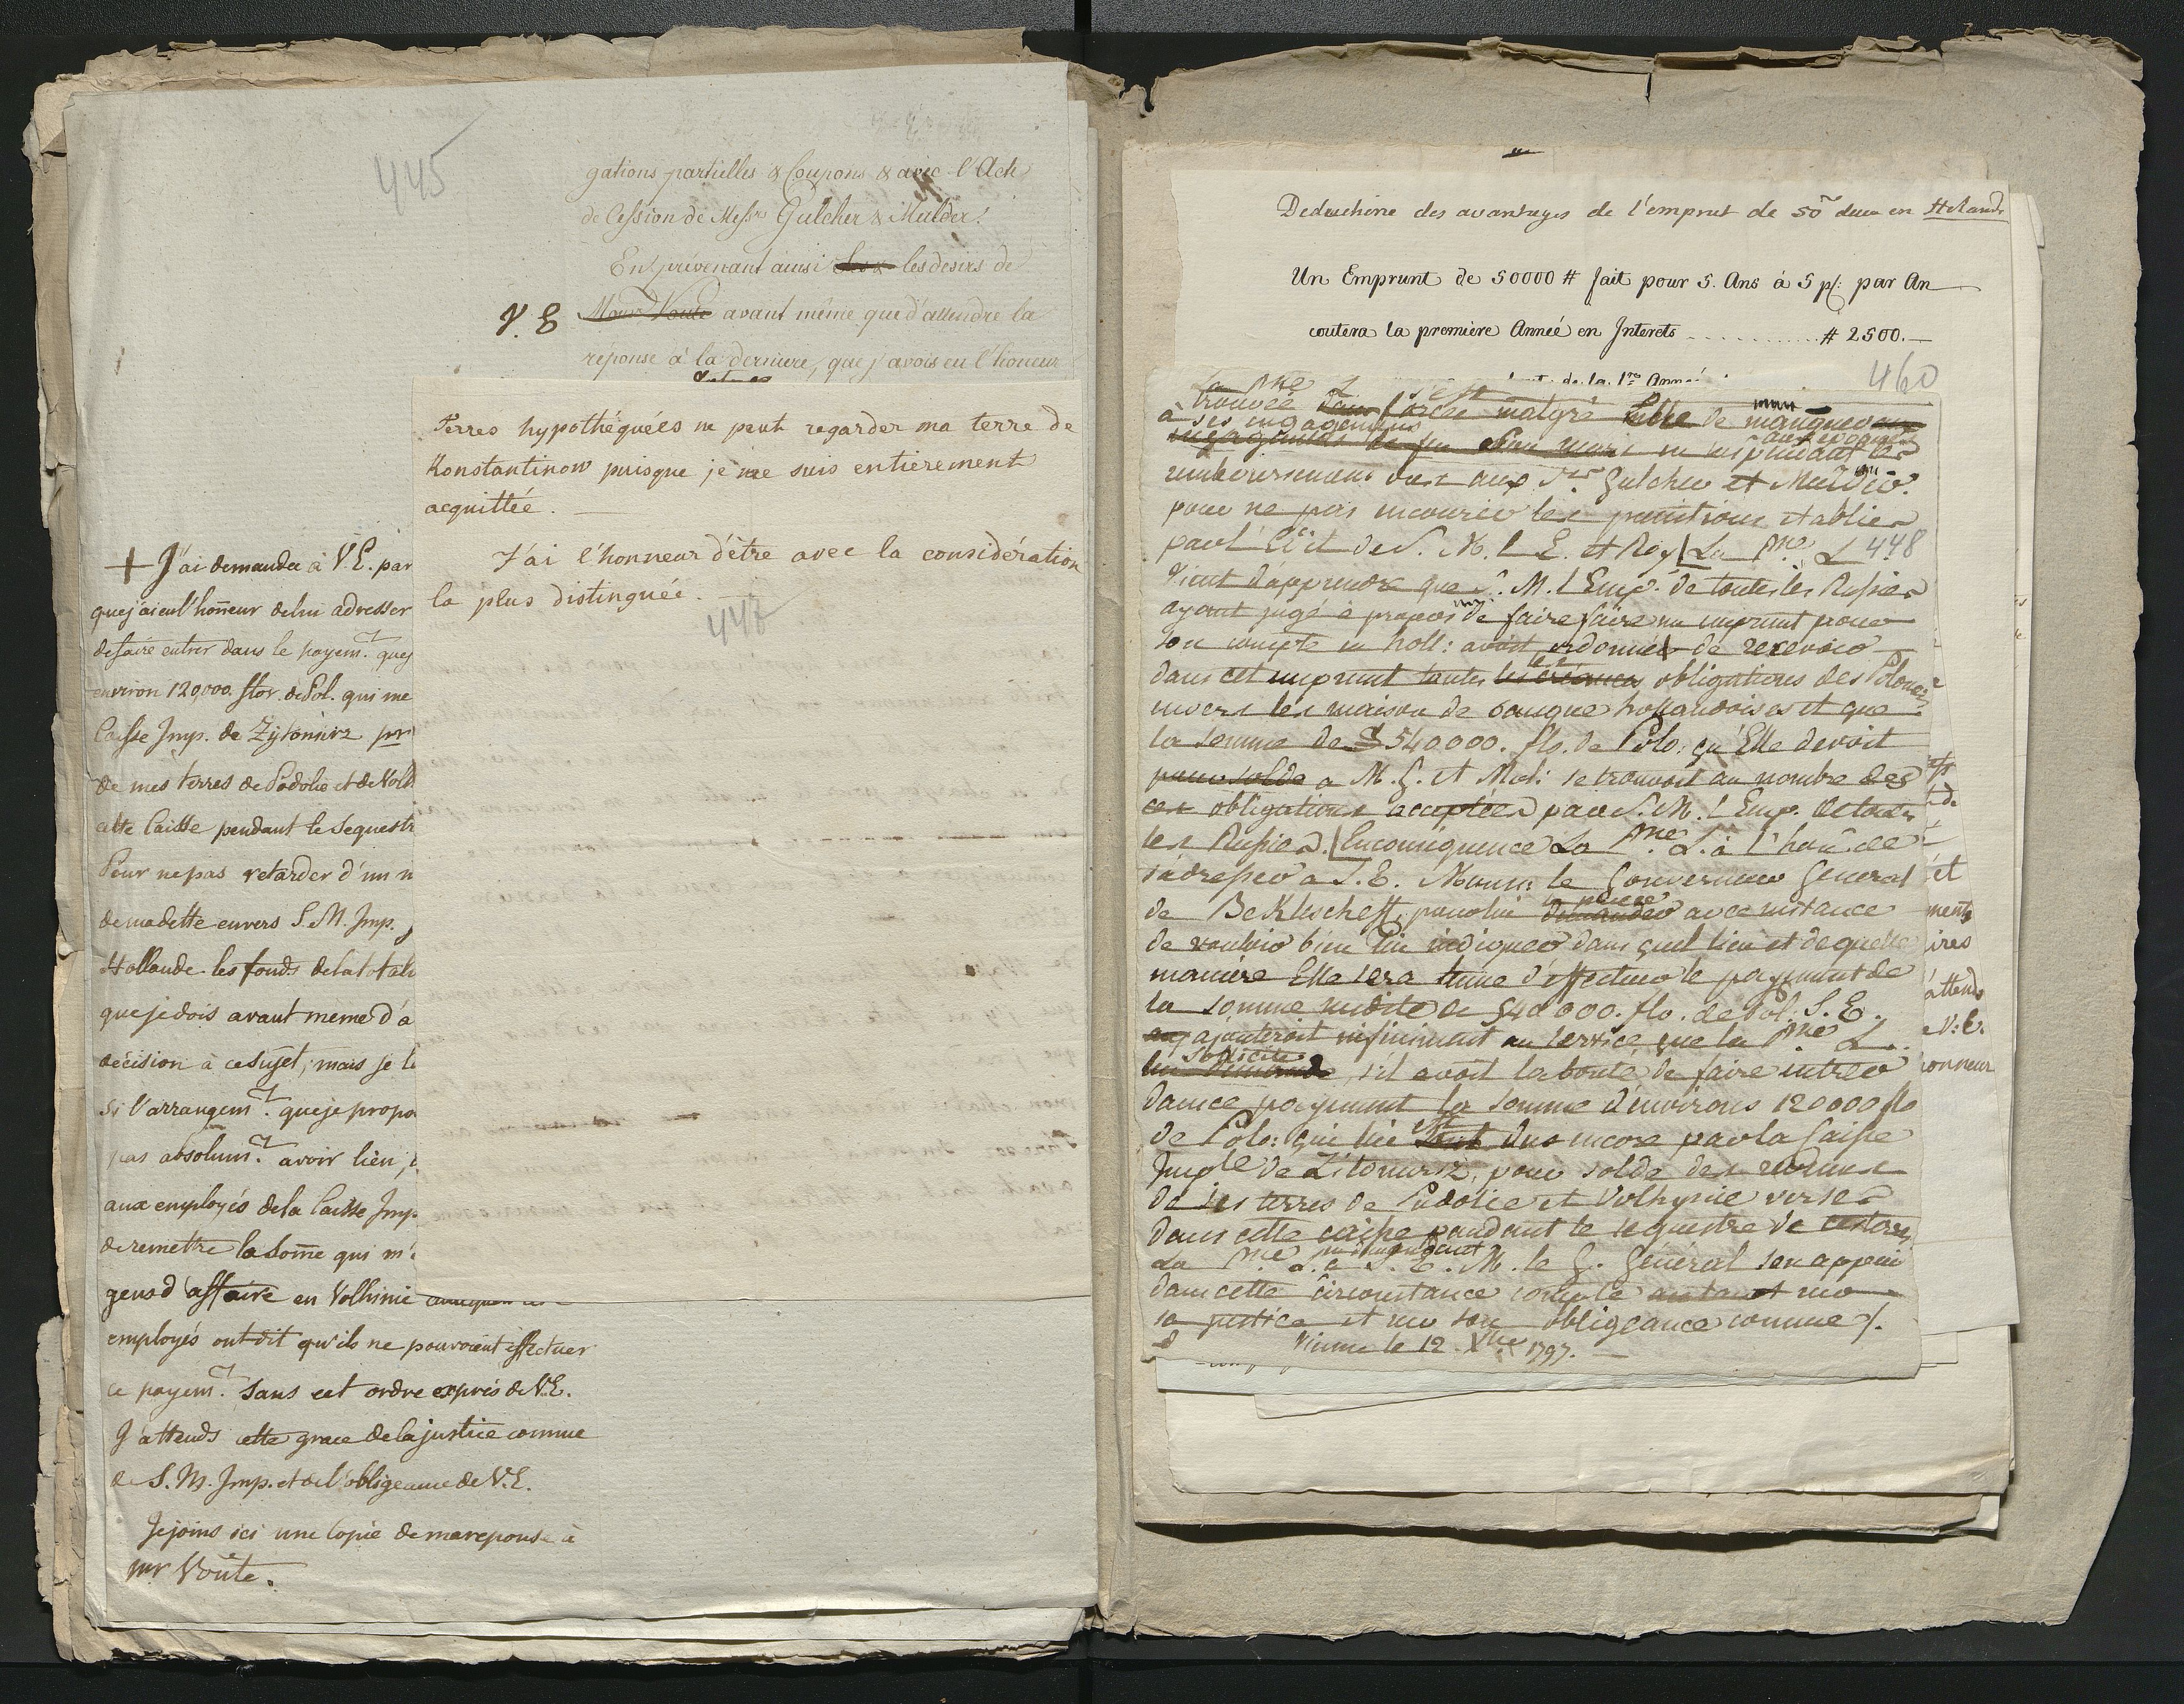 445
gations partielles & Coupons & avec l'Acte
de Cession de Messrs Gulcher & Mulder.
En prévenant ainsi les desirs de
V. E Monsr Voute avant même que d'attendre la
réponse à la derniere, que j'avois eu l'honneur
Terres hypothéquées ne peut regarder ma terre de
Konstantinow puisque je me suis entierement
acquittée.
J'ai l'honneur d'être avec la considération
la plus distinguée.
+ J'ai demandée à V.E. par
que j'ai eu l'honneur de lui adresser
de faire entrer dans le payemt. que
environ 120,000. flor. de Pol. qui me
Caisse Imp. de Zytomirz pr
de mes terres de Podolie et de Volh
cette Caisse pendant le sequestr
Pour ne pas retarder d'un m
de ma dette envers S.M. Imp.
Hollande les fonds de la totali
que je dois avant meme d'a
décision à ce sujet; mais je
si l'arrangemt. que je propo
pas absolumt. avoir lieu,
aux employés de la Caisse Imp.
de remettre la somme qui m'
gens d'affaire en Volhinie
employés ont dit qu'ils ne pouvoient effectuer
ce payemt. sans cet ordre exprès de V.E.
J'attends cette grace de la justice comme
de S. M. Imp. et de l'obligeance de V.E.
Je joins ici une Copie de ma reponse à
mr Voûte.
des avantages de l'emprut de 50m duca en Holande
Un Emprunt de 50000 # fait pour 5. Ans à 5 p/: par An
coutera la première Année en Interets ........... # 2500.—
de la 1re Année
460
la Pme L s'est
trouvée forcée malgré elle de manquer
à ses engagemens
remboursement dus aux Srs. Gulcher et Mulder.
pour ne pas encourir les punitions etablies
par l'Edit de S. M. l'E. et Roy La Pme L 448
vient d'apprendre que S. M. l'Emp. de toutes les Russies
ayant jugé à propos de faire faire un emprunt pour
son compte en holl: avoit ordonné de recevoir
dans cet emprunt toutes les créances obligations des Polonois
envers les maison de banque hollandoises et que
la somme de 540000. flo. de Polo: qu'Elle devoit
pour solde a M. G. et Mul: se trouvoit au nombre des
ces obligations acceptées par S. M. l'Emp. de toutes
les Russies. En conséquence La Pme. L. à l'hon. de
s'adresser a S. E. Monsr. le Gouverneur General
de Bekleschoff, pour lui demander avec instance
de vouloir bien lui indiquer dans quel lieu et de quelle
manière Elle sera tenue d'effectuer le payement de
la somme susdite de 540000. flo. de Pol. S. E.
ajouteroit infiniment au service que la Pme L.
sollicite, s'il avoit la bonté de faire entrer
dans ce payement la somme d'environs 120000 flo
de Polo: qui lui sont dus encore par la Caisse
Imple de Zitomirz, pour solde des revenus
de ses terres de Podolie et Volhynie versés
dans cette caisse pendant le sequestre de ces terres
La Pme. L. a S. E. M. le G. General son appui
dans cette circonstance compte autant sur
sa justice et sur son obligeance comme /.
Vienne le 12 Xbre 1797.
et
ments
ires
attends
V: E.
onneur